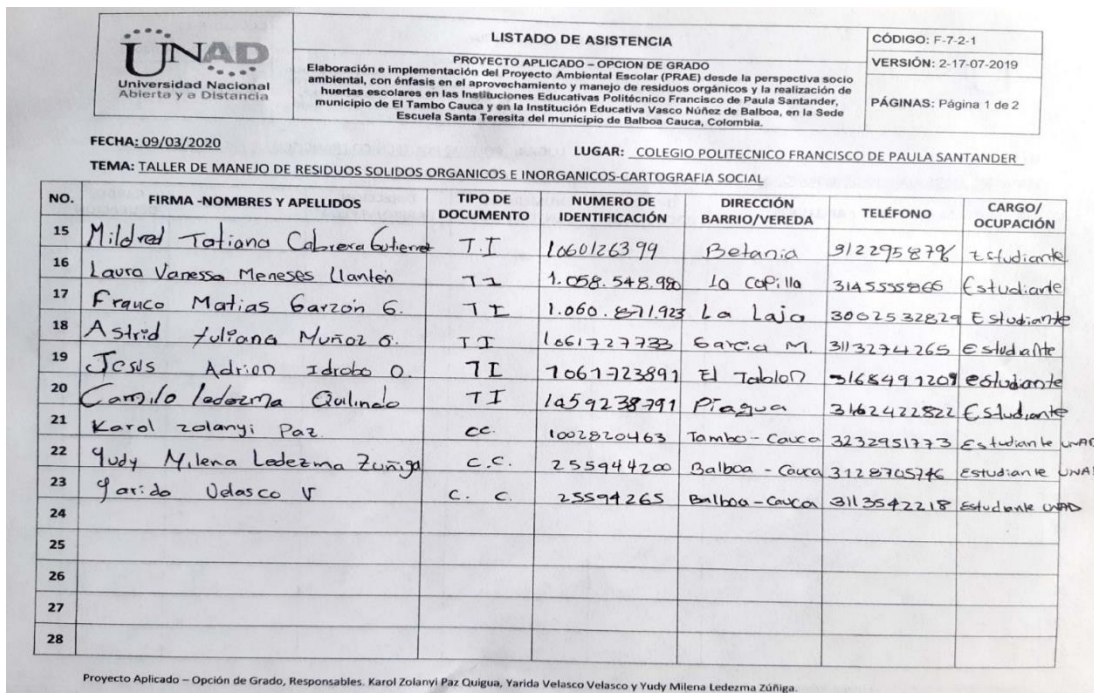 UNAD
Universidad Nacional
Abierta y a Distancia
LISTADO DE ASISTENCIA
PROYECTO APLICADO – OPCION DE GRADO
Elaboración e implementación del Proyecto Ambiental Escolar (PRAE) desde la perspectiva socio
ambiental, con énfasis en el aprovechamiento y manejo de residuos orgánicos y la realización de
huertas escolares en las Instituciones Educativas Politécnico Francisco de Paula Santander,
municipio de El Tambo Cauca y en la Institución Educativa Vasco Núñez de Balboa, en la Sede
Escuela Santa Teresita del municipio de Balboa Cauca, Colombia.
CÓDIGO: F-7-2-1
VERSIÓN: 2-17-07-2019
PÁGINAS: Página 1 de 2
FECHA: 09/03/2020
LUGAR: COLEGIO POLITECNICO FRANCISCO DE PAULA SANTANDER
TEMA: TALLER DE MANEJO DE RESIDUOS SOLIDOS ORGANICOS E INORGANICOS-CARTOGRAFIA SOCIAL
NO. FIRMA -NOMBRES Y APELLIDOS TIPO DE DOCUMENTO NUMERO DE IDENTIFICACIÓN DIRECCIÓN BARRIO/VEREDA TELÉFONO CARGO/ OCUPACIÓN
15 Mildred Tatiana Cabrera Gutierrez T.I 1060126399 Betania 3122958798 Estudiante
16 Laura Vanessa Meneses Llanten TI 1.058.548.980 la Capilla 3145555866 Estudiante
17 Franco Matias Garzón G. TI 1.060.871.923 La Laja 3002532829 Estudiante
18 Astrid Yuliana Muñoz G. TI 1061727733 Garcia M. 3113274265 Estudiante
19 Jesus Adrian Idrobo O. TI 1061723891 El Tablon 3168491209 estudiante
20 Camilo ledezma Quilindo TI 1059238791 Piagua 3162422822 Estudiante
21 Karol zolanyi Paz. CC. 1002820463 Tambo - Cauca 3232951773 Estudiante UNAD
22 Yudy Milena Ledezma Zuñiga C.C. 255944200 Balboa - Cauca 3128705746 Estudiante UNAD
23 Yarida Velasco V C. C. 25594265 Balboa - Cauca 3113542218 Estudiante UNAD
24
25
26
27
28
Proyecto Aplicado – Opción de Grado, Responsables. Karol Zolanyi Paz Quigua, Yarida Velasco Velasco y Yudy Milena Ledezma Zúñiga.